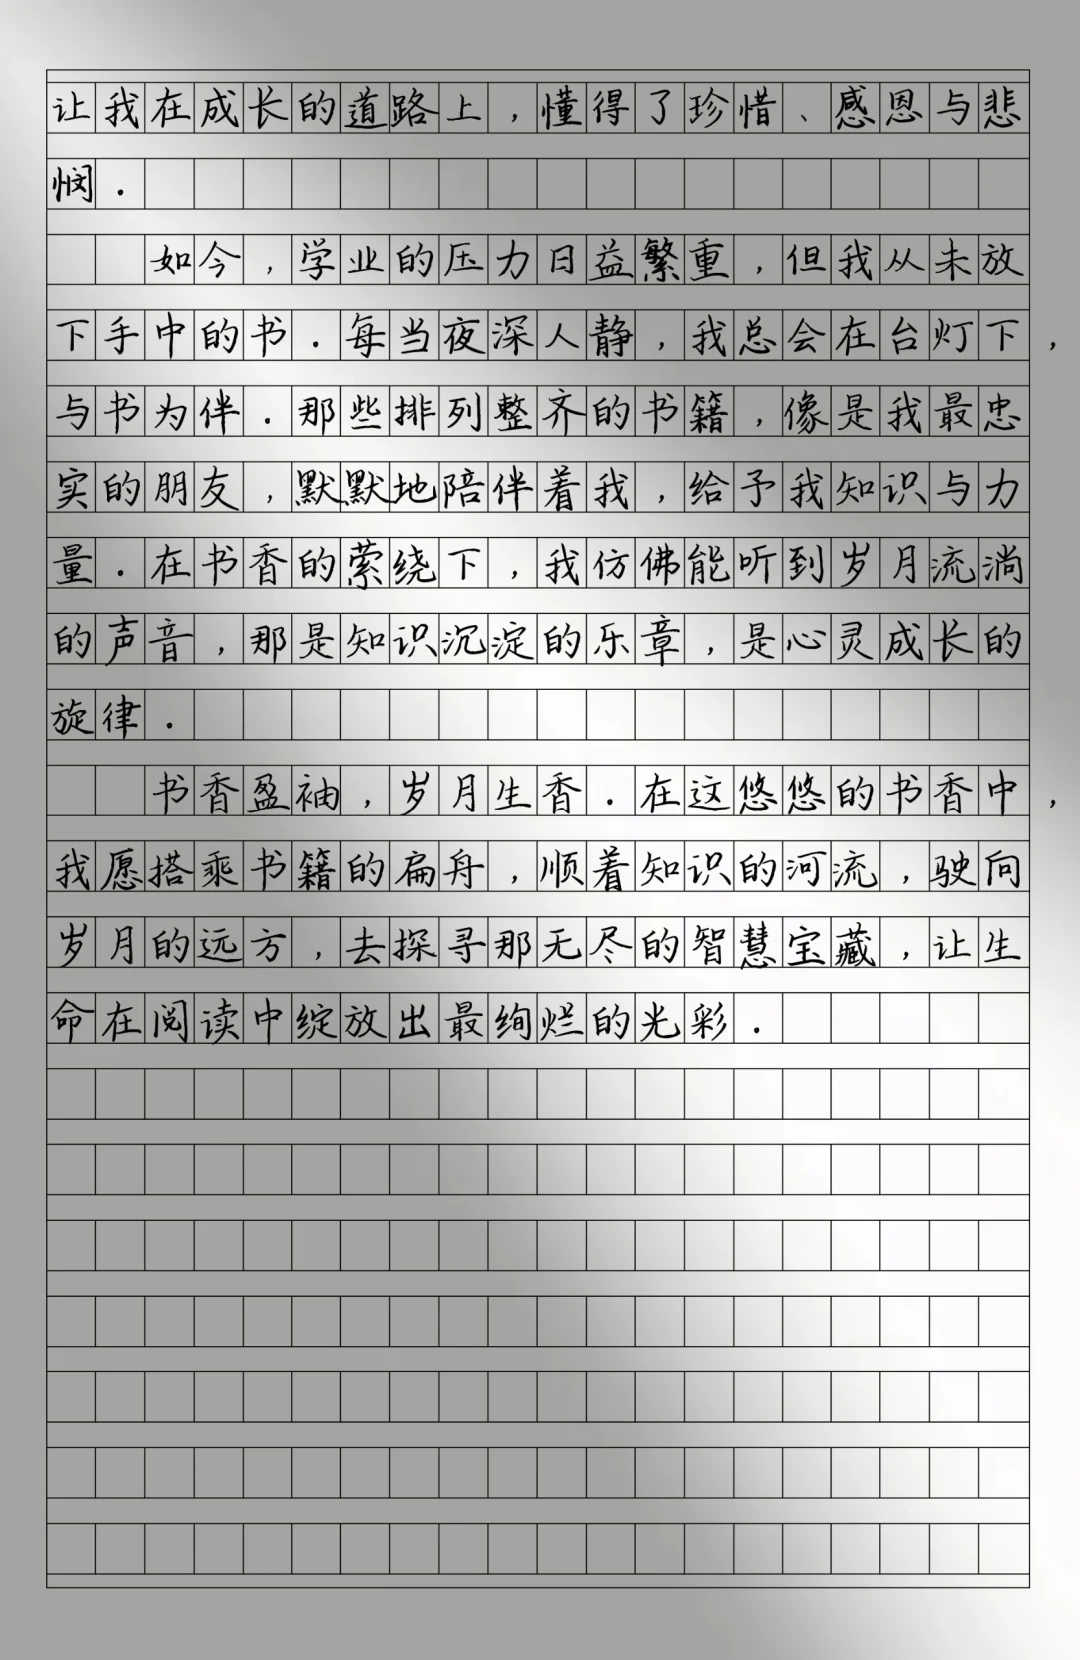 让我在成长的道路上，懂得了珍惜、感恩与悲
悯．
如今，学业的压力日益繁重，但我从未放
下手中的书．每当夜深人静，我总会在台灯下，
与书为伴．那些排列整齐的书籍，像是我最忠
实的朋友，默默地陪伴着我，给予我知识与力
量．在书香的萦绕下，我仿佛能听到岁月流淌
的声音，那是知识沉淀的乐章，是心灵成长的
旋律．
书香盈袖，岁月生香．在这悠悠的书香中，
我愿搭乘书籍的扁舟，顺着知识的河流，驶向
岁月的远方，去探寻那无尽的智慧宝藏，让生
命在阅读中绽放出最绚烂的光彩．